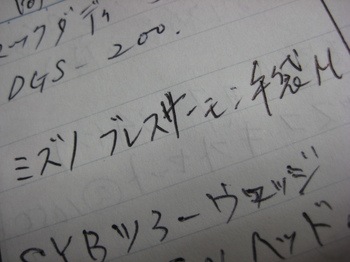 DGS-200.
ミズノ ブレスサーモ:手袋M
SYBツアーウェッジ
ヘッド